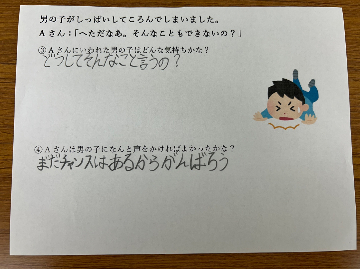 男の子がしっぱいしてころんでしまいました。
Aさん:「へただなあ。そんなこともできないの？」
③Aさんにいわれた男の子はどんな気持ちかな？
どうしてそんなこと言うの？
④Aさんは男の子になんと声をかければよかったかな？
まだチャンスはあるからがんばろう